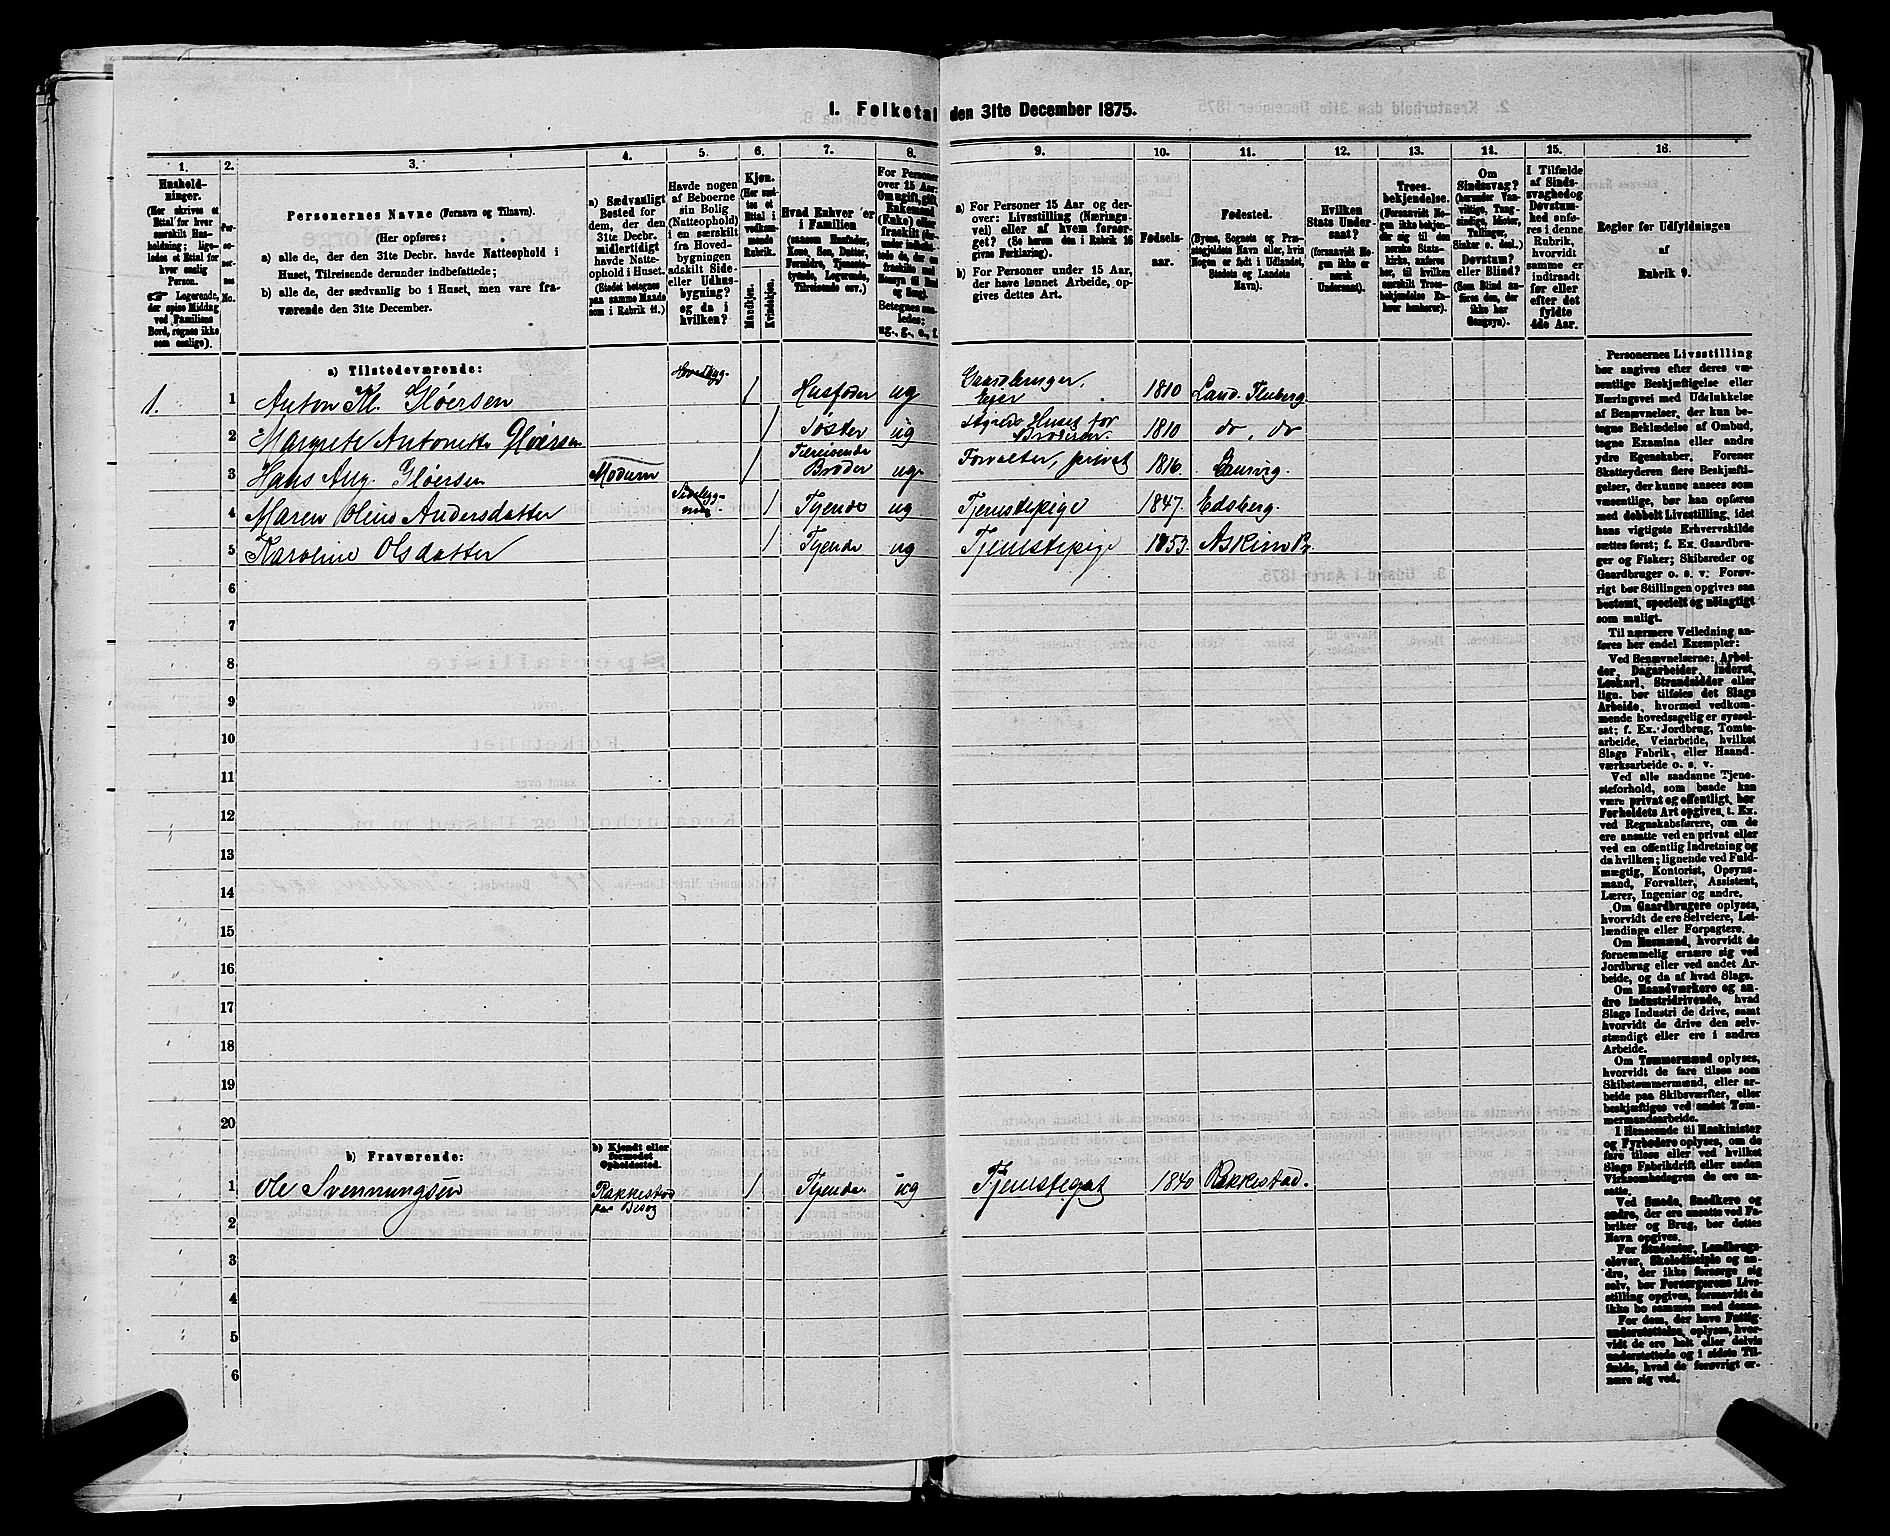 1. Folketal den 31te December 1875.
1. 2. 3. 4. 5. 6. 7. 8. 9. 10. 11. 12. 13. 14. 15. 16.
Husholdninger.
(Her skrives et Ettal for hver særskilt Husholdning; ligeledes et Ettal for hver enslig Person.
Logerende, der spise Middag ved Familiens Bord, regnes ikke som enslige).
Personernes No.
Personernes Navne (Fornavn og Tilnavn).
(Her opføres:
a) alle de, der den 31te Decbr. havde Natteophold i Huset, Tilreisende derunder indbefattede;
b) alle de, der sædvanlig bo i Huset, men vare fraværende den 31te December.
a) Sædvanligt Bosted for dem, der den 31te Decbr. midlertidigt havde Natteophold i Huset.
(Stedet betegnes paa samme Maade som i Rubrik 11.)
Havde nogen af Beboerne sin Bolig (Natteophold) i en særskilt fra Hovedbygningen adskilt Side- eller Udhusbygning? og da i hvilken?
Kjøn.
(Her sættes et Ettal i vedkommende Rubrik.
Mandkjøn. Kvindekjøn.
Hvad Enhver er i Familien
(saasom Husfader, Kone, Søn, Datter, Forældre, Tjenestetyende, Logerende, Tilreisende osv.)
For Personer over 15 Aar: Om ugift, gift, Enkemand (Enke) eller fraskilt
Betegnes saaledes: ug., g., e., f.
a) For Personer 15 Aar og derover: Livsstilling (Næringsvei) eller af hvem forsørget? (Se herom den i Rubrik 16 givne Forklaring).
b) For Personer under 15 Aar, der have lønnet Arbeide, opgives dettes Art.
Fødselsaar.
Fødested.
(Byens, Sognets og Præstegjeldets Navn eller, hvis Nogen er født i Udlandet, Stedets og Landets Navn).
Hvilken Stats Undersaat?
(forsaavidt Nogen ikke er norsk Undersaat).
Troesbekjendelse.
(Forsaavidt Nogen ikke bekjender sig til den norske Statskirke, anføres her, til hvilken særskilt Troesbekjendelse Enhver henhører).
Om Sindssvag?
Døvstum?
eller Blind?
I Tilfælde af Sindssvaghed og Døvstumhed anføres i denne Rubrik, hvorvidt samme er indtraadt før eller efter det fyldte 4de Aar.
Regler for Udfyldningen af Rubrik 9.
a) Tilstedeværende:
1. 1 Anton Kl. Gløersen Hovedbyg. 1 Husfader ug Gaardbruger, Eier 1810 Land. Fluberg
2 Margrete Antonette Gløersen 1 Søster ug Styrer Huset for Broderen. 1810 do. do
3 Hans Aug. Gløersen Modum 1 Tilreisende Broder ug. Forvalter, privat 1816.
4 Maren Oline Andersdatter 1 Tyende ug Tjenestepige 1847. Edsberg.
5 Karoline Olsdatter 1 Tyende ug Tjenestepige 1853. Askim
6
7
8
9
10
11
12
13
14
15
16
17
18
19
20
b) Fraværende:
b) Kjendt eller formodet Opholdssted.
1 Ole Svennungsen Rakkestad paa Besøg 1 Tyende. ug Tjenestegut 1840 Rakkestad.
2
3
4
5
6
Personernes Livsstilling bør angives efter deres væsentlige Beskjæftigelse eller Næringsvei med Udelukkelse af Benævnelser, der kun betegne Beklædelse af Ombud, tagne Examina eller andre ydre Egenskaber. Forener Skatteyderen flere Beskjæftigelser, der kunne ansees som væsentlige, bør han opføres med dobbelt Livsstilling, idet hans vigtigste Erhvervskilde sættes først; f. Ex. Gaardbruger og Fisker; Skibsreder og Gaardbruger o. s. v. Forøvrigt bør Stillingen opgives saa bestemt, specielt og nøiagtigt som muligt.
Til nærmere Veiledning anføres her endel Exempler:
Ved Benævnelserne: Arbeider, Dagarbeider, Inderst, Løskarl, Strandsidder eller lign. bør tilføies det Slags Arbeide, hvormed vedkommende hovedsagelig er sysselsat; f. Ex. Jordbrug, Tomtearbeide, Veiarbeide, hvilket Slags Fabrik, eller Haandværksarbeide o. s. v.
Ved alle saadanne Tjenesteforhold, som baade kan være privat og offentligt, bør Forholdets Art opgives, t. Ex. ved Regnskabsførere, om de ere ansatte ved en privat eller ved en offentlig Indretning og da hvilken; lignende ved Fuldmægtig, Kontorist, Opsynsmand, Forvalter, Assistent, Lærer, Ingeniør og andre.
Om Gaardbrugere oplyses, hvorvidt de ere Selveiere, Leilændinge eller Forpagtere.
Om Husmænd, hvorvidt de fornemmelig ernære sig ved Jordbrug eller ved andet Arbeide, og da af hvad Slags.
Om Haandværkere og andre Industridrivende, hvad Slags Industri de drive, samt hvorvidt de drive den selvstændigt eller ere i andres Arbeide.
Om Tømmermænd oplyses, hvorvidt de fare tilsøs som Skibstømmermænd, eller arbeide paa Skibsværfter, eller beskjæftiges ved andet Tømmermandsarbeide.
I Henseende til Maskinister og Fyrbødere oplyses, om de fare tilsøs eller ved hvilket Slags Fabrikdrift eller anden Virksomhedsgren de ere ansatte.
Ved Smede, Snedkere og andre, der ere ansatte ved Fabriker og Brug, bør dettes Navn opgives.
For Studenter, Landbrugselever, Skoledisciple og andre, der ikke forsørge sig selv, bør Forsørgerens Livsstilling opgives, forsaavidt de ikke bo sammen med denne.
For dem, der have Fattigunderstøttelse, oplyses, hvorvidt de ere helt eller delvis understøttede og i sidste Tilfælde, hvad de forøvrigt ernære sig ved.